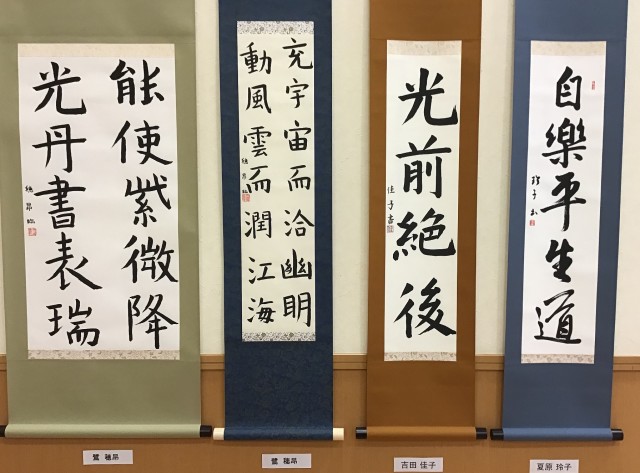 能使紫微降
光丹書表瑞
穂昂臨
充宇宙而洽幽明
動風雲而潤江海
穂昂臨
光前絶後
佳子書
自樂平生道
玲子書
鷺 穂昂
鷺 穂昂
吉田 佳子
夏原 玲子